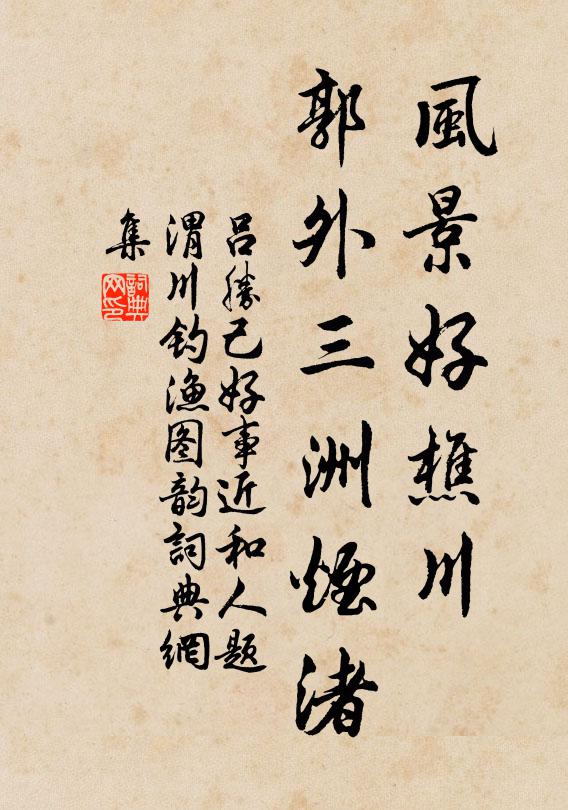 風景好樵川
郭外三洲煙渚
吕勝己好事近和人题
渭川钓渔图韵詞典網
集
詞典
网印